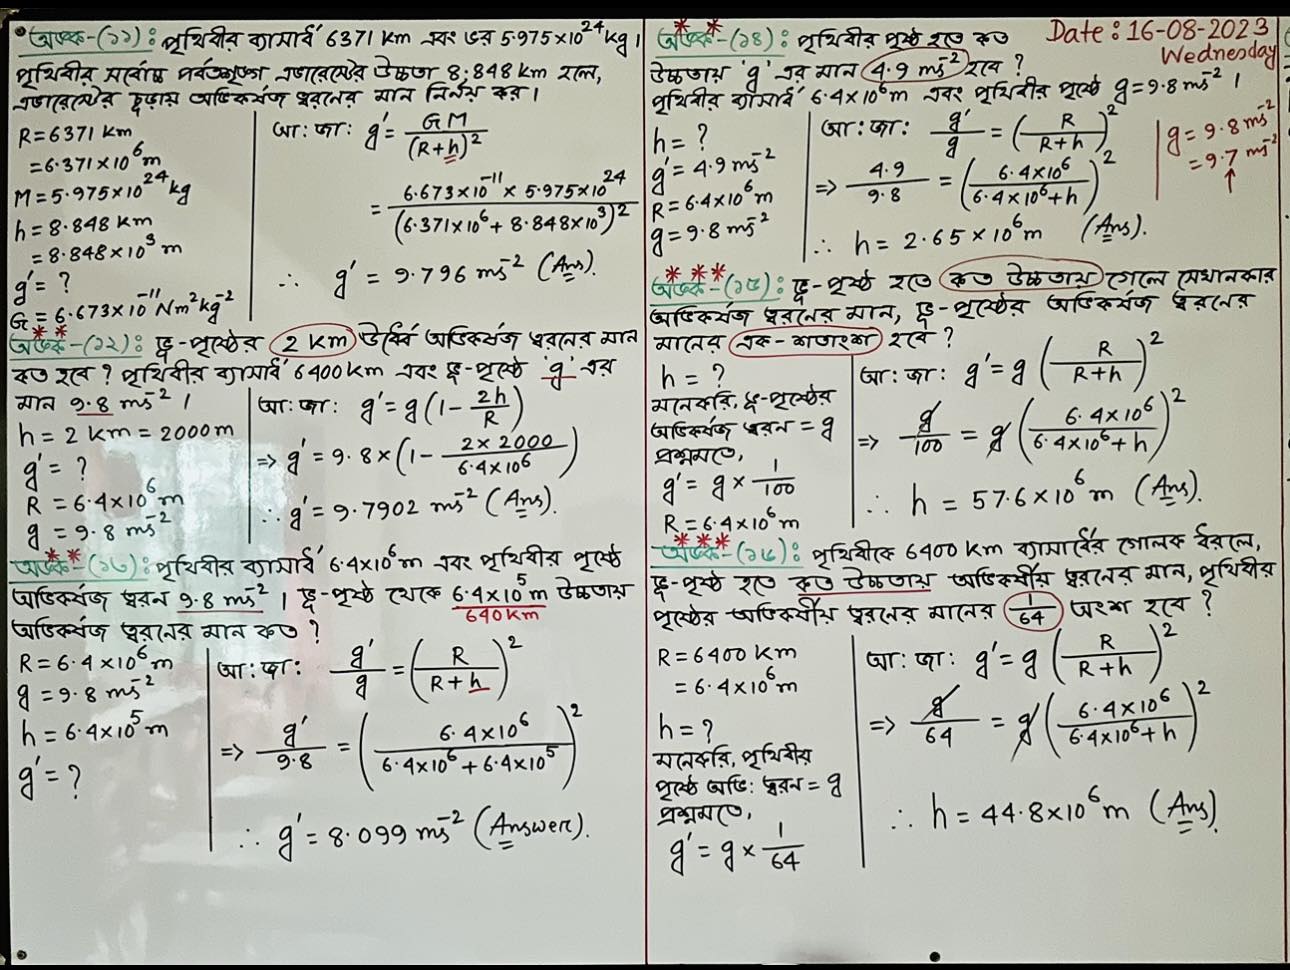 অংক-(১১): পৃথিবীর ব্যাসার্ধ 6371 Km এবং ভর 5.975×10²⁴ kg।
পৃথিবীর সর্বোচ্চ পর্বতশৃঙ্গ এভারেস্টের উচ্চতা 8.848 Km হলে,
এভারেস্টের চূড়ায় অভিকর্ষজ ত্বরনের মান নির্নয় কর।
R = 6371 Km
= 6.371×10⁶ m
M = 5.975×10²⁴ kg
h = 8.848 Km
= 8.848×10³ m
g′ = ?
G = 6.673×10⁻¹¹ Nm² kg⁻²
আ: জা: g′ = GM/(R+h)²
= 6.673×10⁻¹¹ × 5.975×10²⁴/(6.371×10⁶ + 8.848×10³)²
∴ g′ = 9.796 ms⁻² (Ans).
** অংক-(১২): ভূ-পৃষ্ঠের 2 Km উর্ধ্বে অভিকর্ষজ ত্বরনের মান
কত হবে? পৃথিবীর ব্যাসার্ধ 6400 Km এবং ভূ-পৃষ্ঠে 'g' এর
মান 9.8 ms⁻²।
h = 2 Km = 2000 m
g′ = ?
R = 6.4×10⁶ m
g = 9.8 ms⁻²
আ: জা: g′ = g(1 - 2h/R)
=> g′ = 9.8×(1 - 2×2000/6.4×10⁶)
∴ g′ = 9.7902 ms⁻² (Ans).
** অংক-(১৩): পৃথিবীর ব্যাসার্ধ 6.4×10⁶ m এবং পৃথিবীর পৃষ্ঠে
অভিকর্ষজ ত্বরন 9.8 ms⁻²। ভূ-পৃষ্ঠ থেকে 6.4×10⁵ m উচ্চতায়
640 Km
অভিকর্ষজ ত্বরনের মান কত?
R = 6.4×10⁶ m
g = 9.8 ms⁻²
h = 6.4×10⁵ m
g′ = ?
আ: জা: g′/g = (R/(R+h))²
=> g′/9.8 = (6.4×10⁶/(6.4×10⁶ + 6.4×10⁵))²
∴ g′ = 8.099 ms⁻² (Answer).
Date: 16-08-2023
Wednesday
** অংক-(১৪): পৃথিবীর পৃষ্ঠ হতে কত
উচ্চতায় 'g' এর মান 4.9 ms⁻² হবে?
পৃথিবীর ব্যাসার্ধ 6.4×10⁶ m এবং পৃথিবীর পৃষ্ঠে g = 9.8 ms⁻²।
h = ?
g′ = 4.9 ms⁻²
R = 6.4×10⁶ m
g = 9.8 ms⁻²
আ: জা: g′/g = (R/(R+h))²
=> 4.9/9.8 = (6.4×10⁶/(6.4×10⁶+h))²
∴ h = 2.65×10⁶ m (Ans).
g = 9.8 ms⁻²
= 9.7 ms⁻²
↑
*** অংক-(১৫): ভূ-পৃষ্ঠ হতে কত উচ্চতায় গেলে সেখানকার
অভিকর্ষজ ত্বরনের মান, ভূ-পৃষ্ঠের অভিকর্ষজ ত্বরনের
মানের এক-শতাংশ হবে?
h = ?
মনেকরি, ভূ-পৃষ্ঠের
অভিকর্ষজ ত্বরন = g
প্রশ্নমতে,
g′ = g × 1/100
R = 6.4×10⁶ m
আ: জা: g′ = g (R/(R+h))²
=> g/100 = g (6.4×10⁶/(6.4×10⁶+h))²
∴ h = 57.6×10⁶ m (Ans).
*** অংক-(১৬): পৃথিবীকে 6400 Km ব্যাসার্ধের গোলক ধরলে,
ভূ-পৃষ্ঠ হতে কত উচ্চতায় অভিকর্ষীয় ত্বরনের মান, পৃথিবীর
পৃষ্ঠের অভিকর্ষীয় ত্বরনের মানের 1/64 অংশ হবে?
R = 6400 Km
= 6.4×10⁶ m
h = ?
মনেকরি, পৃথিবীর
পৃষ্ঠে অভি: ত্বরন = g
প্রশ্নমতে,
g′ = g × 1/64
আ: জা: g′ = g (R/(R+h))²
=> g/64 = g (6.4×10⁶/(6.4×10⁶+h))²
∴ h = 44.8×10⁶ m (Ans).